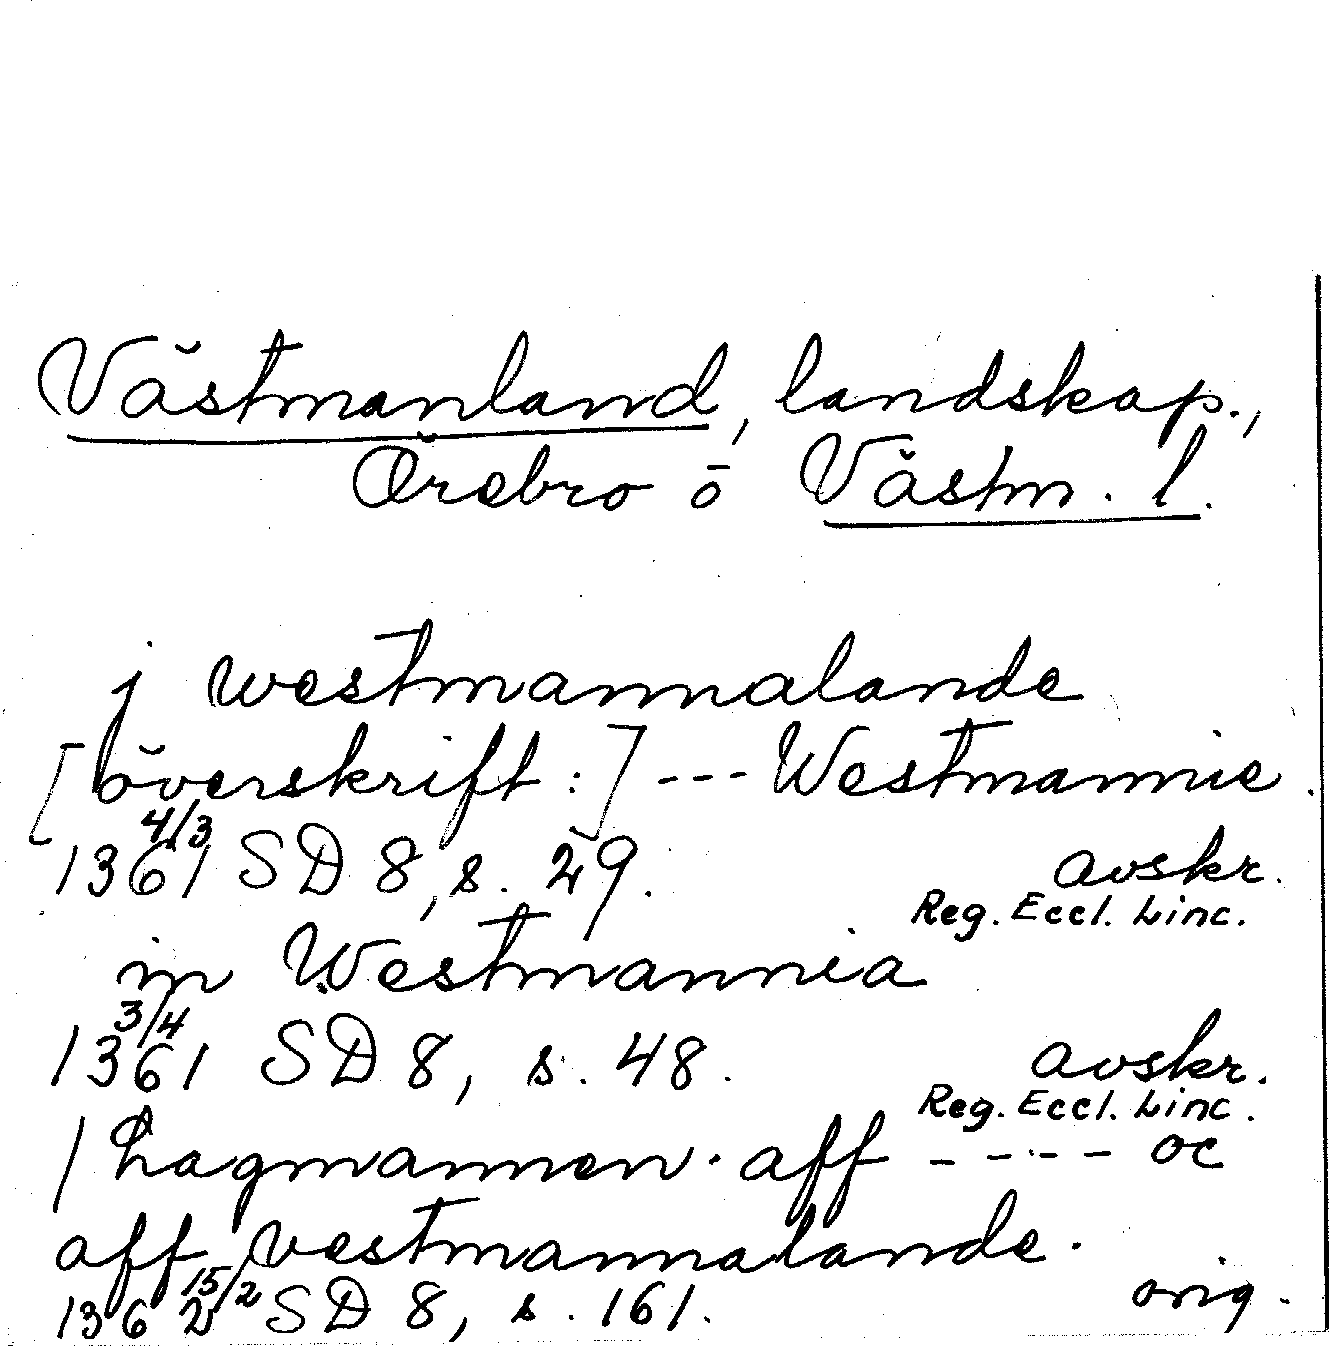 Västmanland, landskap.,
Örebro o Västm. l.
j westmannalande
[överskrift:] --- Westmannie.
1361 4/3 SD 8, s. 29. avskr.
Reg. Eccl. Linc.
in Westmannia
1361 3/4 SD 8, s. 48. avskr.
Reg. Eccl. Linc.
/ Lagmannen. aff ----- oc
aff vestmannalande.
1362 15/2 SD 8, s. 161. orig.